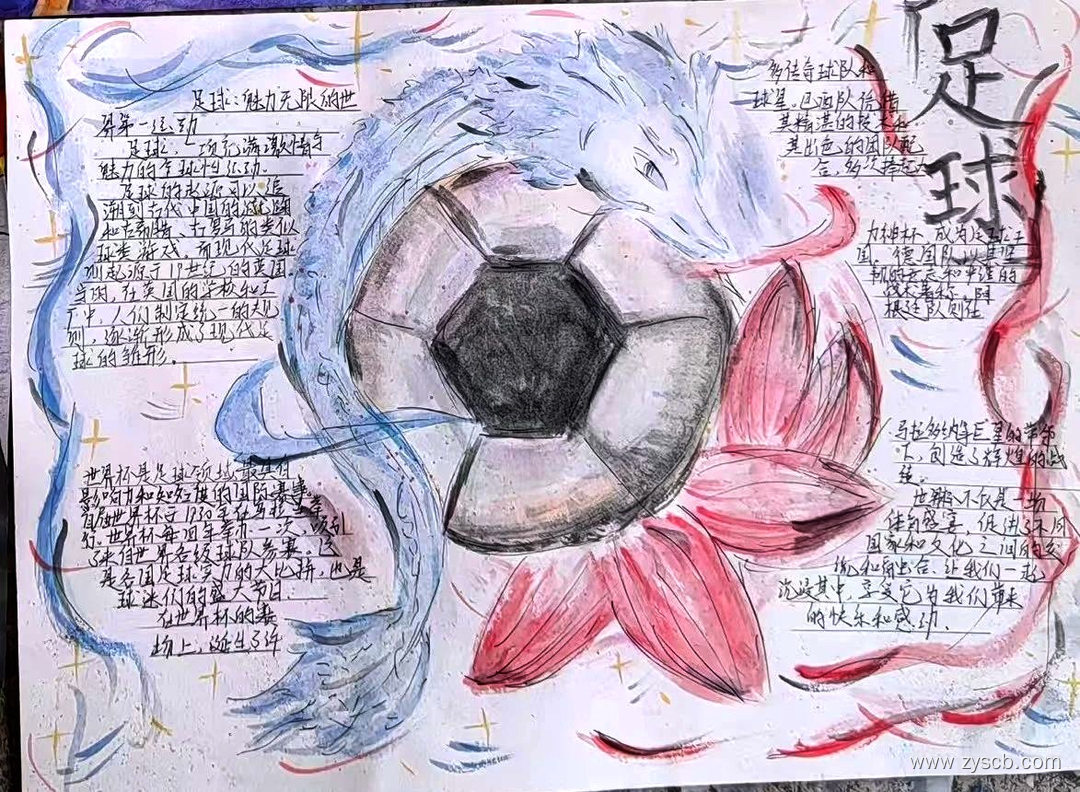 足球
足球：魅力无限的世
界第一运动
足球，一项充满激情与
魅力的全球性运动.
足球的起源可以追
溯到古代中国的蹴鞠
和古希腊、古罗马的类似
球类游戏，而现代足球
则起源于19世纪的英国.
当时，在英国的学校和工
厂中，人们制定统一的规
则，逐渐形成了现代足
球的雏形.
世界杯是足球领域最具有
影响力和知名度的国际赛事.
首届世界杯于1930年在乌拉圭举
行.世界杯每四年举办一次，吸引
了来自世界各级球队参赛.这
是各国足球实力的大比拼，也是
球迷们的盛大节日.
在世界杯的赛
场上，诞生了许
多传奇球队和
球星。巴西队凭借
其精湛的技术和
其出色的团队配
合，多次捧起大
力神杯，成为足球王
国。德国队以其坚
韧的意志和严谨的
战术著称，阿
根廷队则在
马拉多纳等巨星的带领
下，创造了辉煌的战
绩.
世界杯不仅是一场
体育盛宴，促进了不同
国家和文化之间的交
流和融合.让我们一起
沉浸其中，享受它为我们带来
的快乐和感动.
www.zyscb.com